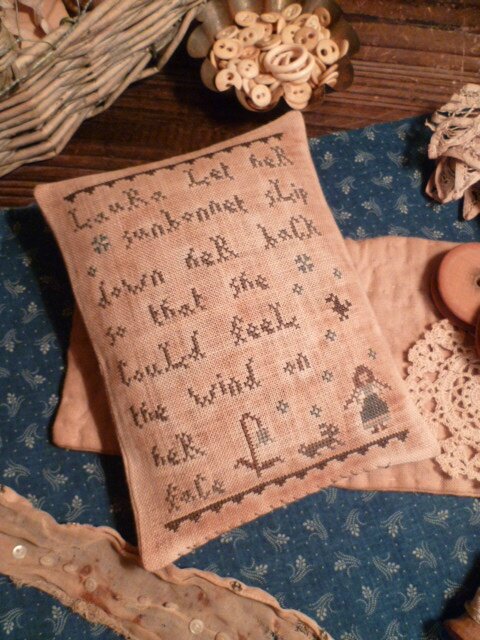 Laura Let her
sunbonnet slip
down her back
so that she
Could feel
the wind on
her
face